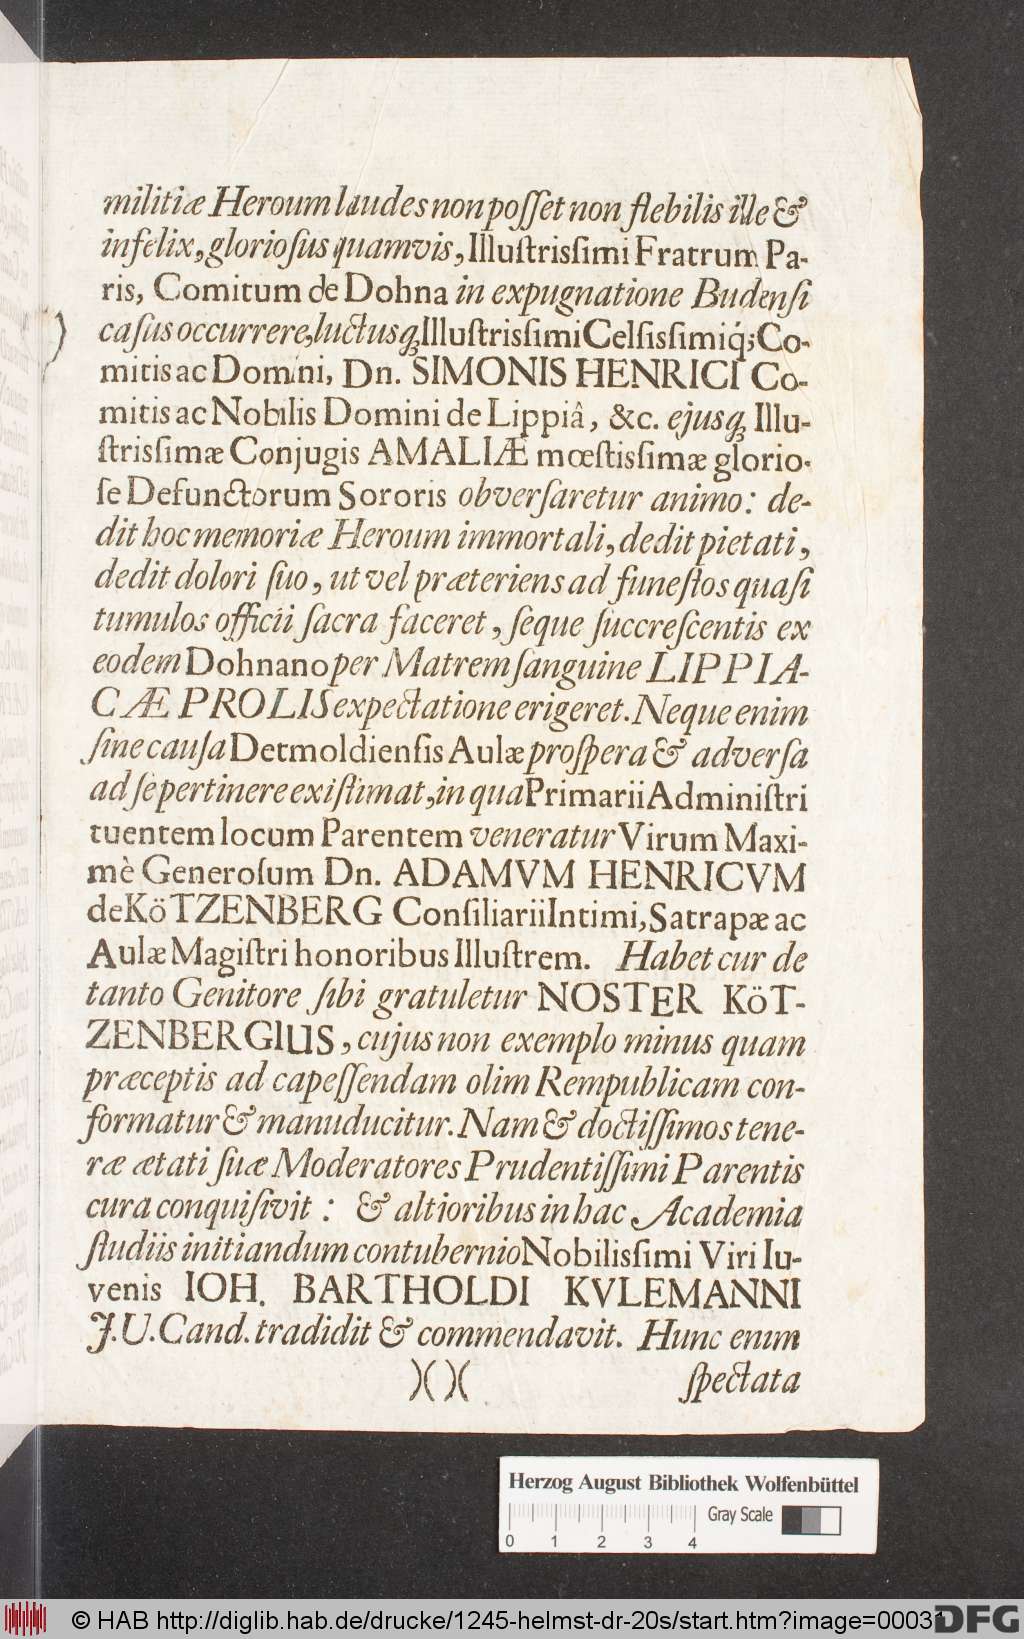 militiæ Heroum laudes non poſſet non flebilis ille &
infelix, glorioſus quamvis, Illuſtrisſimi Fratrum Pa-
ris, Comitum de Dohna in expugnatione Budenſi
caſus occurrere, luctusq; Illuſtrisſimi Celſisſimiq́; Co-
mitis ac Domini, Dn. SIMONIS HENRICI Co-
mitis ac Nobilis Domini de Lippiâ, &c. ejusq; Illu-
ſtrisſimæ Conjugis AMALIÆ mœſtisſimæ glorio-
ſe Defunctorum Sororis obverſaretur animo: de-
dit hoc memoriæ Heroum immortali, dedit pietati,
dedit dolori ſuo, ut vel præteriens ad funeſtos quaſi
tumulos officii ſacra faceret, ſeque ſuccreſcentis ex
eodem Dohnano per Matrem ſanguine LIPPIA-
CÆ PROLIS expectatione erigeret. Neque enim
ſine cauſa Detmoldienſis Aulæ proſpera & adverſa
ad ſe pertinere exiſtimat, in qua Primarii Adminiſtri
tuentem locum Parentem veneratur Virum Maxi-
mè Generoſum Dn. ADAMVM HENRICVM
de KöTZENBERG Conſiliarii Intimi, Satrapæ ac
Aulæ Magiſtri honoribus Illuſtrem. Habet cur de
tanto Genitore ſibi gratuletur NOSTER KöT-
ZENBERGIUS, cujus non exemplo minus quam
præceptis ad capeſſendam olim Rempublicam con-
formatur & manuducitur. Nam & doctiſſimos tene-
ræ ætati ſuæ Moderatores Prudentiſſimi Parentis
cura conquiſivit : & altioribus in hac Academia
ſtudiis initiandum contubernio Nobilisſimi Viri Iu-
venis IOH. BARTHOLDI KVLEMANNI
J.U.Cand. tradidit & commendavit. Hunc enim
)( )( ſpectata
Herzog August Bibliothek Wolfenbüttel
Gray Scale
0 1 2 3 4
© HAB http://diglib.hab.de/drucke/1245-helmst-dr-20s/start.htm?image=00031
DFG